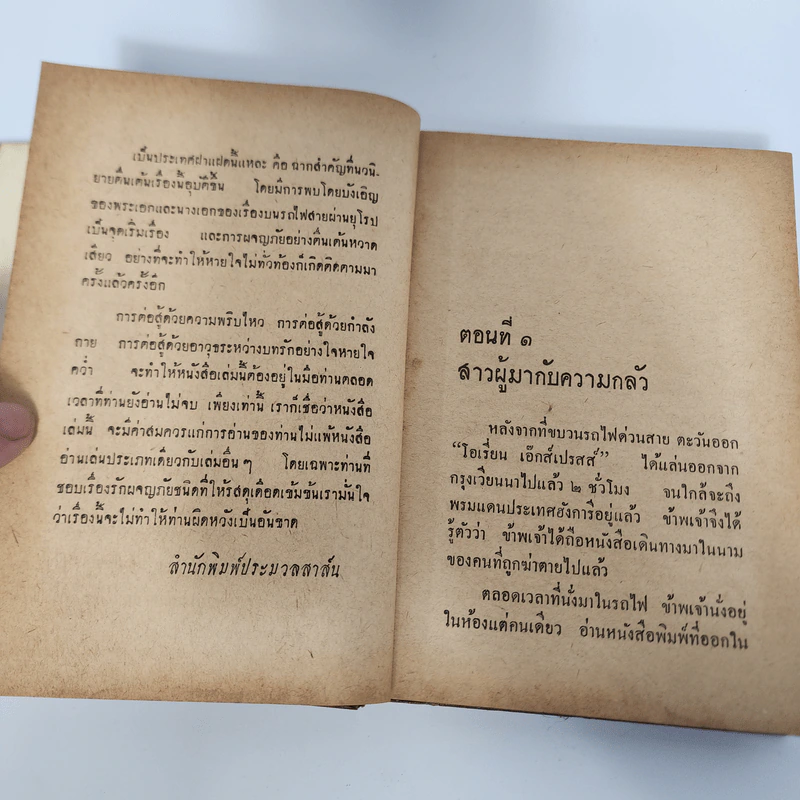 เป็นประเทศฝาแฝดนี้แหละ คือ ฉากสำคัญที่นวนิ-
ยายตื่นเต้นเรื่องนี้อุบัติขึ้น โดยมีการพบโดยบังเอิญ
ของพระเอกและนางเอกของเรื่องบนรถไฟสายผ่านยุโรป
เป็นจุดเริ่มเรื่อง และการผจญภัยอย่างตื่นเต้นหวาด
เสียว อย่างที่จะทำให้หายใจไม่ทั่วท้องก็เกิดติดตามมา
ครั้งแล้วครั้งอีก
การต่อสู้ด้วยความพริบไหว การต่อสู้ด้วยกำลัง
กาย การต่อสู้ด้วยอาวุธระหว่างบทรักอย่างใจหายใจ
คว่ำ จะทำให้หนังสือเล่มนี้ต้องอยู่ในมือท่านตลอด
เวลาที่ท่านยังอ่านไม่จบ เพียงเท่านี้ เราก็เชื่อว่าหนังสือ
เล่มนี้ จะมีค่าสมควรแก่การอ่านของท่านไม่แพ้หนังสือ
อ่านเล่นประเภทเดียวกับเล่มอื่น ๆ โดยเฉพาะท่านที่
ชอบเรื่องรักผจญภัยชนิดที่ให้รสดุเดือดเข้มข้นเรามั่นใจ
ว่าเรื่องนี้จะไม่ทำให้ท่านผิดหวังเป็นอันขาด
สำนักพิมพ์ประมวลสาส์น
ตอนที่ ๑
สาวผู้มากับความกลัว
หลังจากที่ขบวนรถไฟด่วนสาย ตะวันออก
“โอเรียน เอ๊กส์เปรสส์” ได้แล่นออกจาก
กรุงเวียนนาไปแล้ว ๒ ชั่วโมง จนใกล้จะถึง
พรมแดนประเทศฮังการีอยู่แล้ว ข้าพเจ้าจึงได้
รู้ตัวว่า ข้าพเจ้าได้ถือหนังสือเดินทางมาในนาม
ของคนที่ถูกฆ่าตายไปแล้ว
ตลอดเวลาที่นั่งมาในรถไฟ ข้าพเจ้านั่งอยู่
ในห้องแต่คนเดียว อ่านหนังสือพิมพ์ที่ออกใน